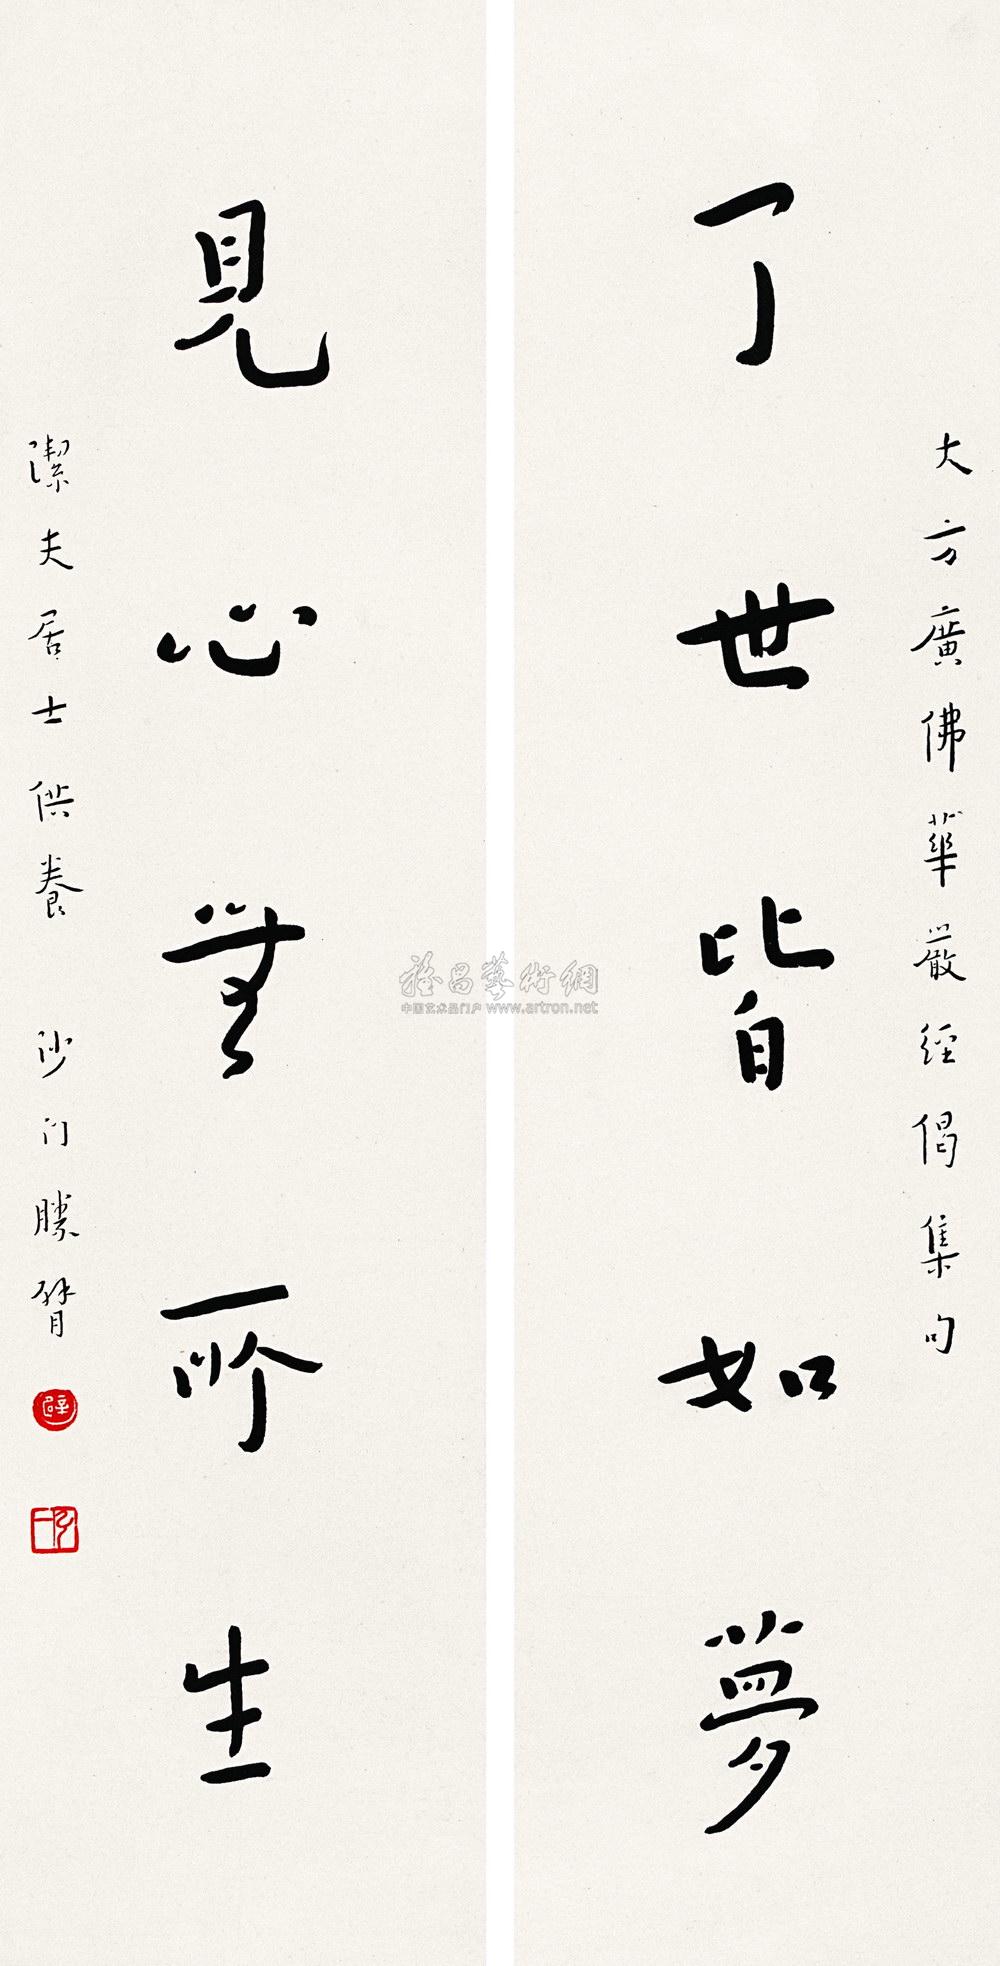 大方廣佛華嚴經偈集句
了世皆如夢
見心無所生
潔夫居士供養 沙门勝臂
雅昌藝術網
中国艺术品门户 www.artron.net